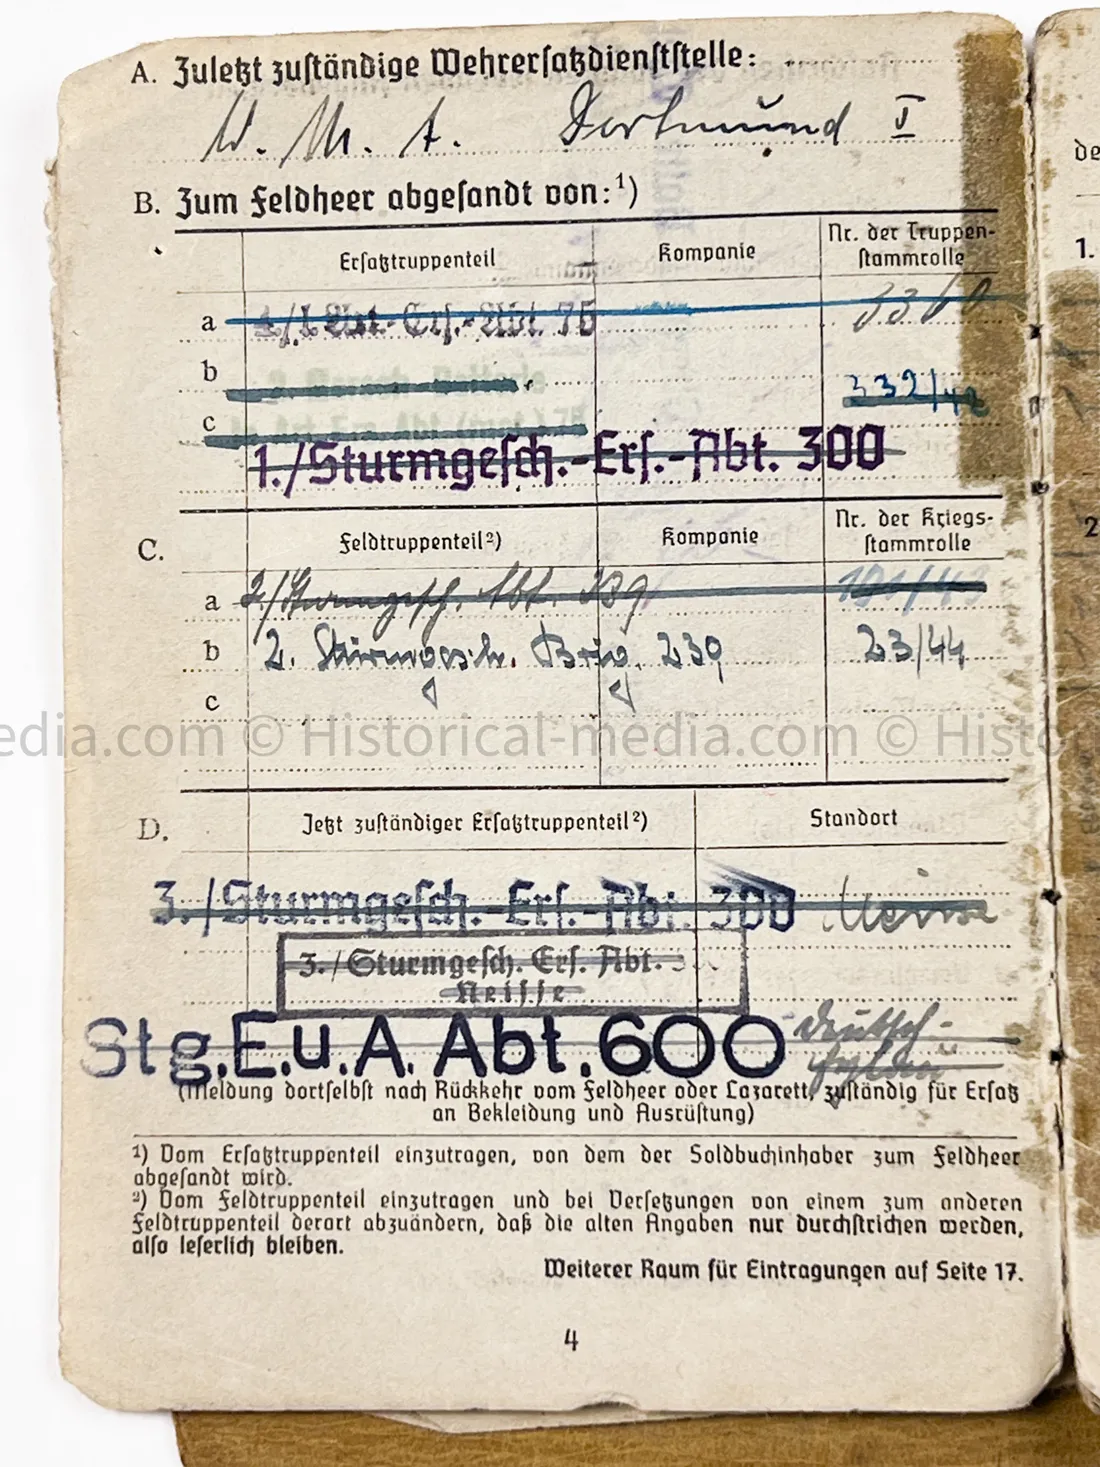 A. Zuletzt zuständige Wehrersatzdienststelle:
W. M. A. Dortmund I
B. Zum Feldheer abgesandt von:¹)
Ersatztruppenteil Kompanie Nr. der Truppen-
stammrolle
a Ers.-Abt. 76
b 332/42
c
1./Sturmgesch.-Ers.-Abt. 300
C. Feldtruppenteil²) Kompanie Nr. der Kriegs-
stammrolle
a 2./Sturmgesch. Abt. 239
b 2. Sturmgesch. Brig. 239 23/44
c
edia.com © Historical-media.com © Histo
D. Jetzt zuständiger Ersatztruppenteil²) Standort
3./Sturmgesch.-Ers.-Abt. 300
3./Sturmgesch. Ers. Abt.
Neisse
Stg.E.u.A. Abt.600 Deutsch-
Eylau
(Meldung dortselbst nach Rückkehr vom Feldheer oder Lazarett, zuständig für Ersatz
an Bekleidung und Ausrüstung)
¹) Vom Ersatztruppenteil einzutragen, von dem der Soldbuchinhaber zum Feldheer
abgesandt wird.
²) Vom Feldtruppenteil einzutragen und bei Versetzungen von einem zum anderen
Feldtruppenteil derart abzuändern, daß die alten Angaben nur durchstrichen werden,
also leserlich bleiben.
Weiterer Raum für Eintragungen auf Seite 17.
4
de
1.
2